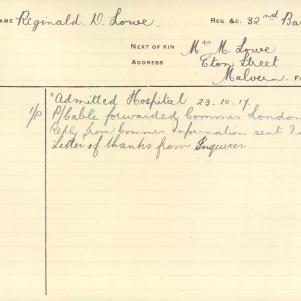 NAME Reginald D. Lowe REG &C. 32nd Ba
NEXT OF KIN Mrs M. Lowe
ADDRESS Eton Street
Malvern
"Admitted Hospital 23.10.17.
1/P P/Cable forwarded Commrs London
Reply from Commrs Information sent
Letter of thanks from Inquirer